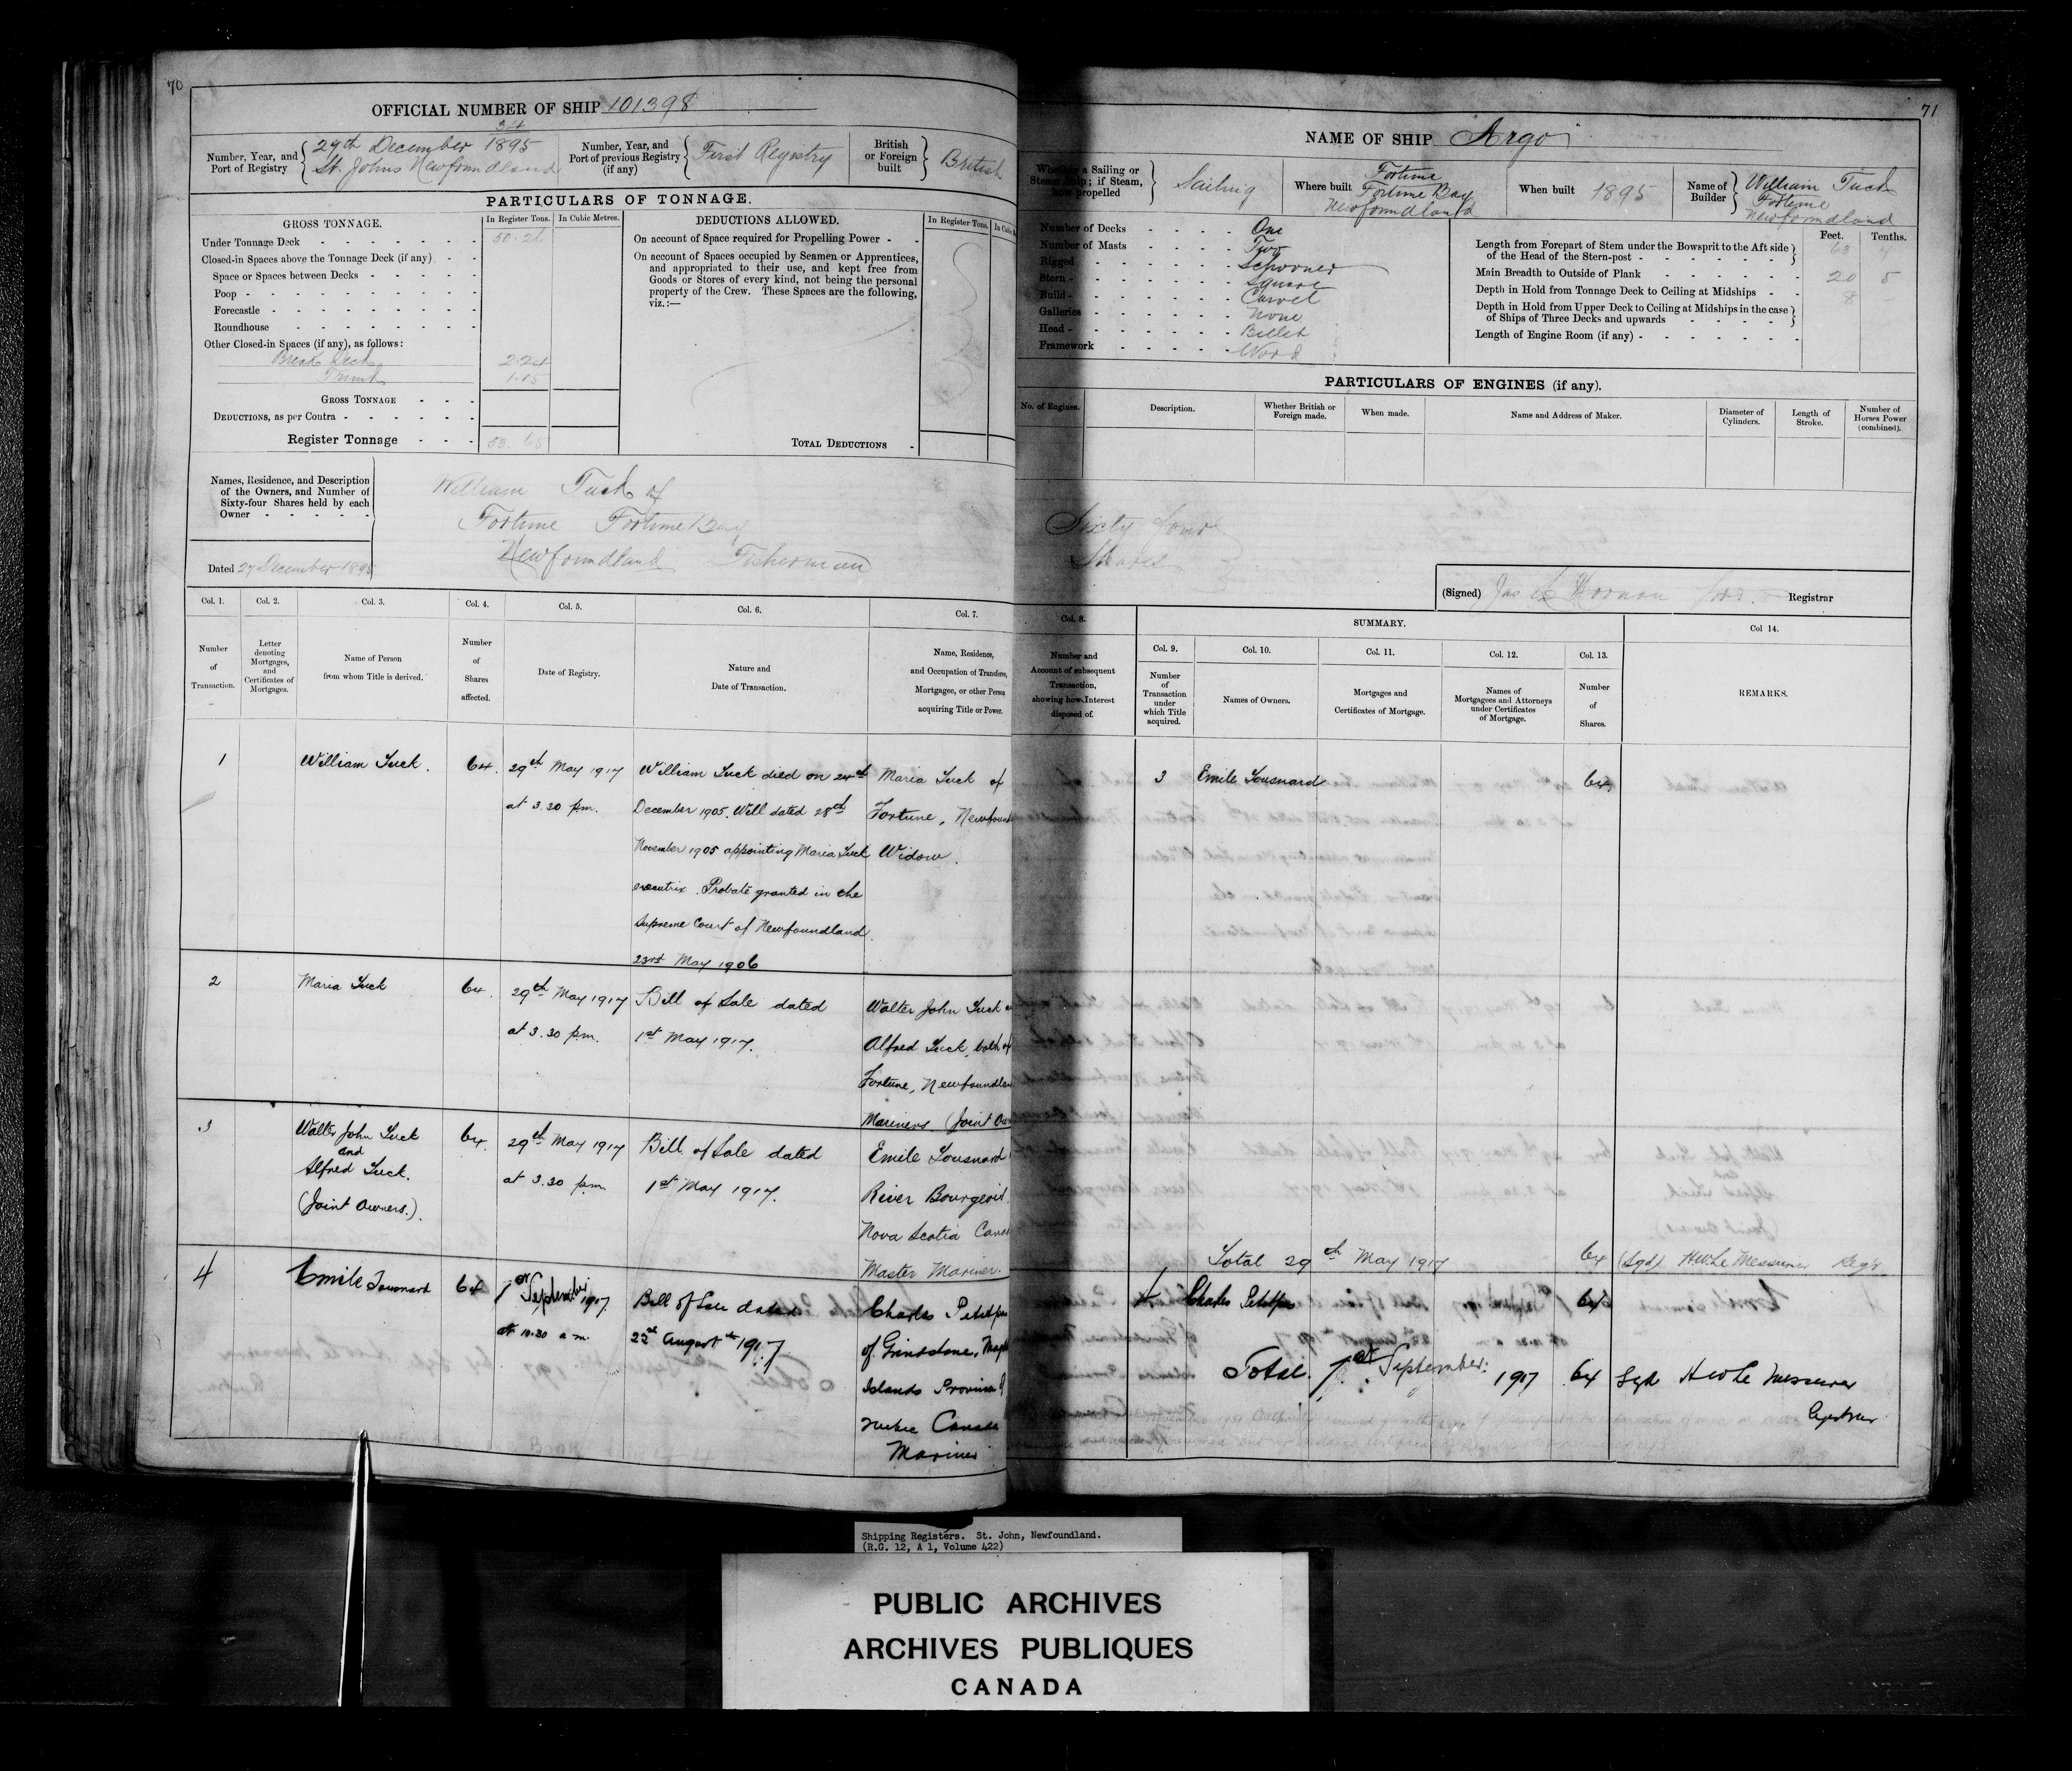 70
OFFICIAL NUMBER OF SHIP 101398
Number, Year, and Port of Registry
34
29th December 1895
St. Johns Newfoundland
Number, Year, and Port of previous Registry (if any)
First Registry
British or Foreign built
British
PARTICULARS OF TONNAGE.
GROSS TONNAGE.
In Register Tons.
In Cubic Metres.
Under Tonnage Deck 50.26
Closed-in Spaces above the Tonnage Deck (if any)
Space or Spaces between Decks
Poop
Forecastle
Roundhouse
Other Closed-in Spaces (if any), as follows:
Break Deck 2.24
Trunk 1.15
GROSS TONNAGE
DEDUCTIONS, as per Contra
Register Tonnage 53.65
DEDUCTIONS ALLOWED.
In Register Tons.
On account of Space required for Propelling Power
On account of Spaces occupied by Seamen or Apprentices,
and appropriated to their use, and kept free from
Goods or Stores of every kind, not being the personal
property of the Crew. These Spaces are the following,
viz.:—
TOTAL DEDUCTIONS
Names, Residence, and Description
of the Owners, and Number of
Sixty-four Shares held by each
Owner
William Tuck of
Fortune Fortune Bay
Newfoundland Fisherman
Dated 27 December 1895
Col. 1.
Col. 2.
Col. 3.
Col. 4.
Col. 5.
Col. 6.
Col. 7.
Number of Transaction.
Letter denoting Mortgages, and Certificates of Mortgages.
Name of Person from whom Title is derived.
Number of Shares affected.
Date of Registry.
Nature and Date of Transaction.
Name, Residence, and Occupation of Transferee, Mortgagee, or other Person acquiring Title or Power.
1
William Tuck.
64.
29th May 1917
at 3.30 pm.
William Tuck died on 24th
December 1905. Will dated 28th
November 1905 appointing Maria Tuck
executrix. Probate granted in the
Supreme Court of Newfoundland.
23rd May 1906
Maria Tuck of
Fortune, Newfound
Widow.
2
Maria Tuck
64.
29th May 1917
at 3.30 p.m.
Bill of Sale dated
1st May 1917.
Walter John Tuck
Alfred Tuck, both of
Fortune, Newfoundlan
Mariners. (Joint Own
3
Walter John Tuck
and
Alfred Tuck.
(Joint Owners.).
64.
29th May 1917
at 3.30 p.m.
Bill of Sale dated
1st May 1917.
Emile Tousnard
River Bourgeois
Nova Scotia Cana
Master Mariner.
4
Emile Tousnard
64
1st September 1917
at 10.30 a.m.
Bill of Sale dated
22nd August 1917
Charles Petitpas
of Grindstone, Magd
Islands Province of
Canada
Mariner
71
NAME OF SHIP Argo
Whether a Sailing or Steam Ship; if Steam, how propelled
Sailing
Where built
Fortune
Fortune Bay
Newfoundland
When built
1895
Name of Builder
William Tuck
Fortune
Newfoundland
Number of Decks One
Number of Masts Two
Rigged Schooner
Stern Square
Build Carvel
Galleries None
Head Billet
Framework Wood
Feet. Tenths.
Length from Forepart of Stem under the Bowsprit to the Aft side
of the Head of the Stern-post 63 4
Main Breadth to Outside of Plank 20 5
Depth in Hold from Tonnage Deck to Ceiling at Midships 8 -
Depth in Hold from Upper Deck to Ceiling at Midships in the case
of Ships of Three Decks and upwards
Length of Engine Room (if any)
PARTICULARS OF ENGINES (if any).
No. of Engines.
Description.
Whether British or Foreign made.
When made.
Name and Address of Maker.
Diameter of Cylinders.
Length of Stroke.
Number of Horses Power (combined).
Sixty four
Shares
(Signed)
Registrar
Col. 8.
SUMMARY.
Col 14.
Col. 9.
Col. 10.
Col. 11.
Col. 12.
Col. 13.
Number and Account of subsequent Transaction, showing how Interest disposed of.
Number of Transaction under which Title acquired.
Names of Owners.
Mortgages and Certificates of Mortgage.
Names of Mortgagees and Attorneys under Certificates of Mortgage.
Number of Shares.
REMARKS.
3
Emile Tousnard
64
Total 29th May 1917
64
(Sgd) H.W. Le Messurier Regr
4
Charles Petitpas
64
Total. 1st September 1917
64
Sgd H W Le Messurier
Registrar
Shipping Registers. St. John, Newfoundland.
(R.G. 12, A 1, Volume 422)
PUBLIC ARCHIVES
ARCHIVES PUBLIQUES
CANADA